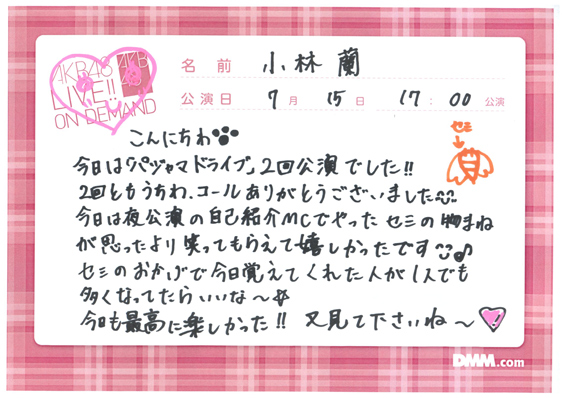 AKB48
LIVE!!
ON DEMAND
AKB
48
名前 小林 蘭
公演日 7月 15日 17:00 公演
こんにちわ
セミ
今日は「パジャマドライブ」2回公演でした!!
2回ともうちわ、コールありがとうございました
今日は夜公演の自己紹介MCでやったセミの物まね
が思ったより笑ってもらえて嬉しかったです♪
セミのおかげで今日覚えてくれた人が1人でも
多くなってたらいいな～☆
今日も最高に楽しかった!! 又見て下さいね～
DMM.com